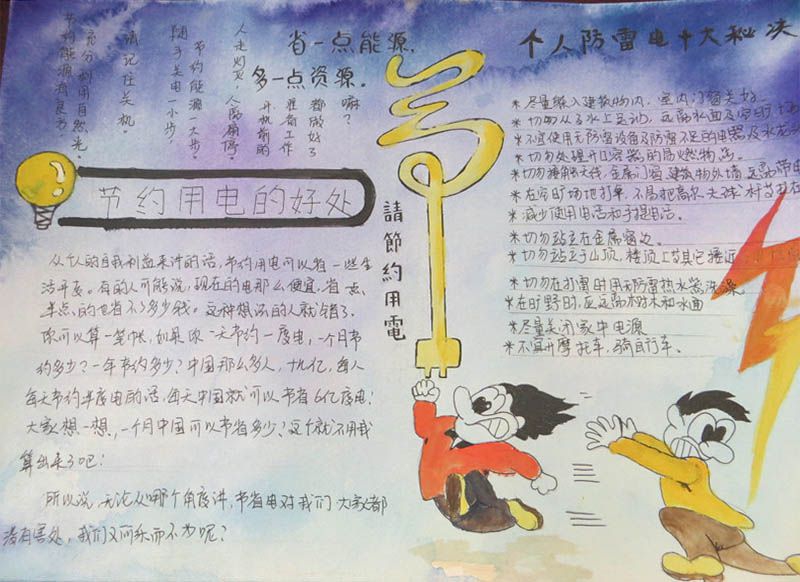 省一点能源,
多一点资源。
嘛?
都做好了
准备工作
开机前的
人走灯灭,人离扇停。
节约能源一大步。
随手关电一小步,
请记住关机。
充分利用自然光。
节约用电的好处
从个人的自我利益来讲的话,节约用电可以省一些生
活开支。有的人可能说,现在的电那么便宜,省一点
半点的也省不了多少钱。这种想法的人就错了。
你可以算一笔帐,如果你一天节约一度电,一个月节
约多少?一年节约多少?中国那么多人,十几亿,每人
每天节约半度电的话,每天中国就可以节省6亿度电!
大家想一想,一个月中国可以节省多少?这个就不用我
算出来了吧!
所以说,无论从哪个角度讲,节省电对我们大家都
没有害处,我们又何乐而不为呢?
請節約用電
个人防雷电十大秘决
*尽量躲入建筑物内,室内门窗关好。
*切勿从事水上运动,远离水面及空旷场
*不宜使用无防雷设备及防雷不足的电器及水龙头
*切勿处理开口容器的易燃物品。
*切勿接触天线、金属门窗、建筑物外墙,远离带电
*在空旷场地打伞,不易把高尔夫球
*减少使用电话和手提电话。
*切勿站立在金属窗边。
*切勿站立于山顶、楼顶上或其它接近
*切勿在打雷时用无防雷热水器洗澡。
*在旷野时,应远离树木和水面
*尽量关闭家中电源
*不宜开摩托车、骑自行车。